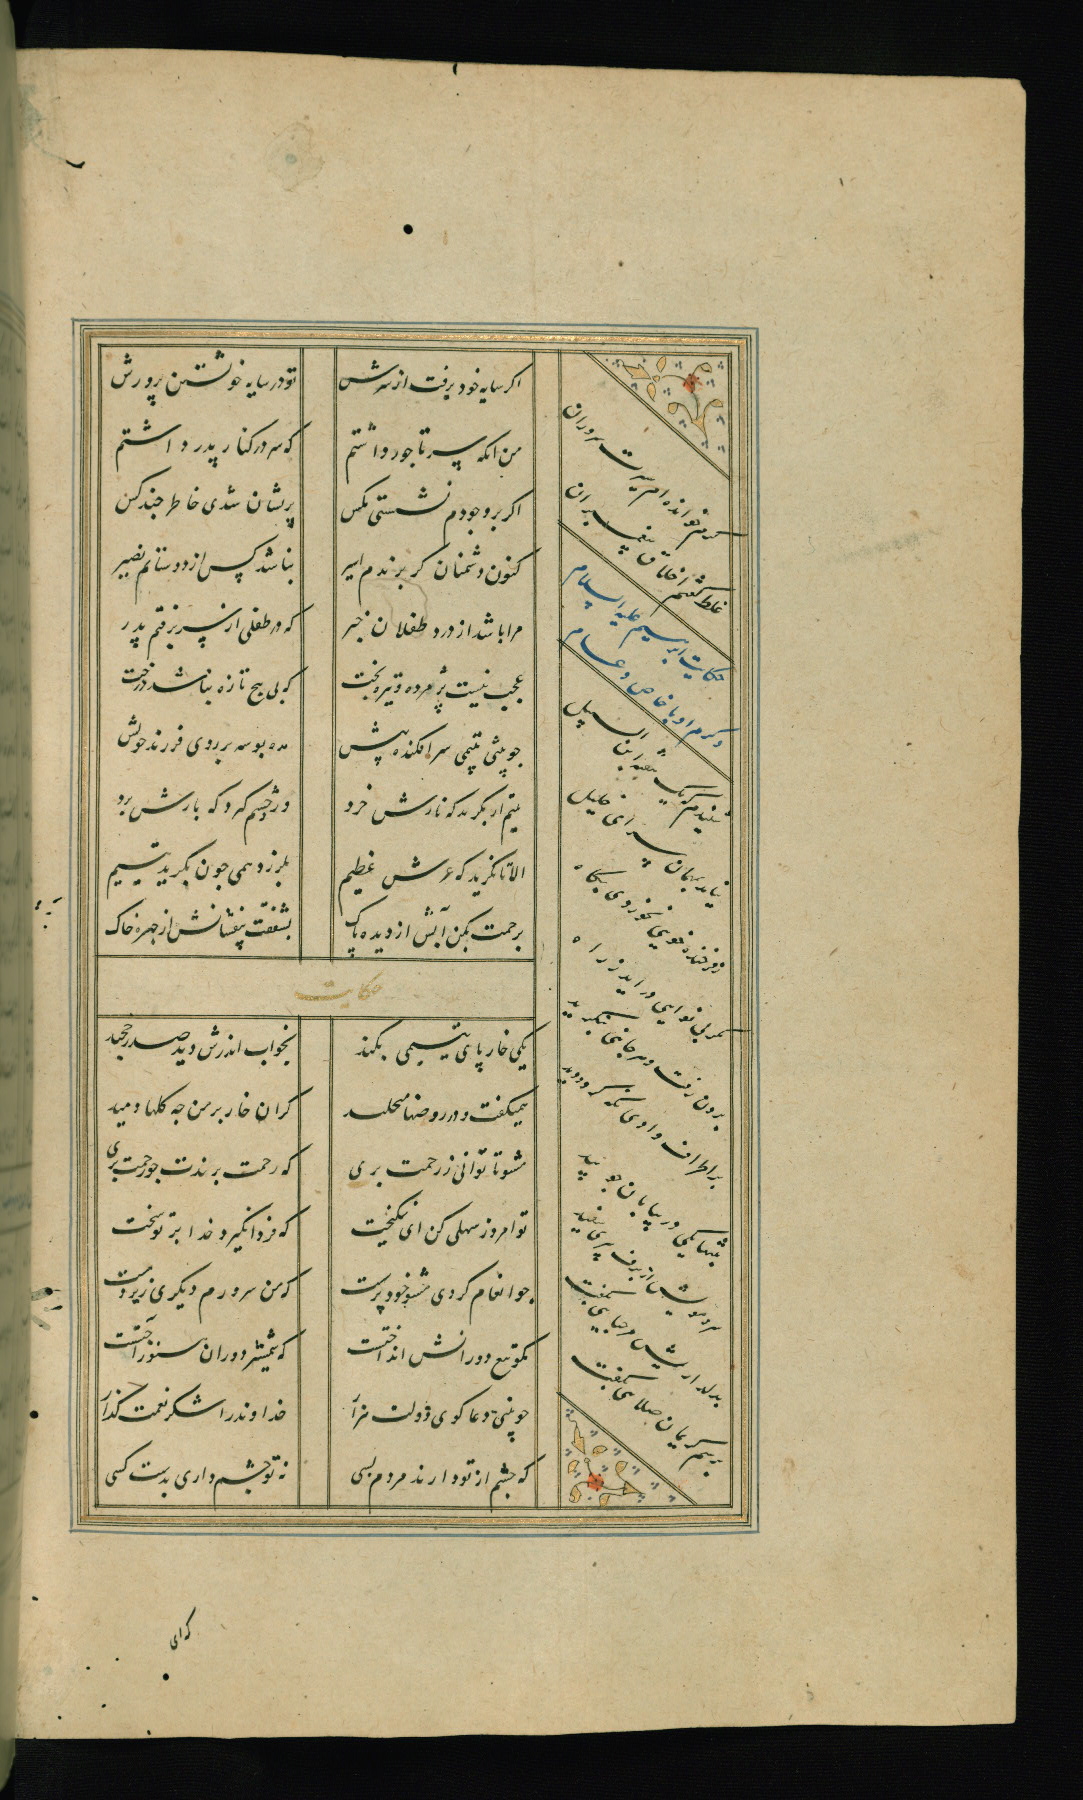 اکر سایه خود برفت از سرش تو در سایه خویشتن پرورش
من انکه سر تاجور داشتم که سر در کنار پدر داشتم
اکر بر وجودم نشستی مکس پریشان شدی خاطر چند کس
کنون دشمنان کر برندم اسیر نباشد کس از دوستانم نصیر
مرا باشد از درد طفلان خبر که در طفلی از سر برفتم پدر
عجب نیست پژمرده و تیره بخت که بی بیخ تازه نباشد درخت
چو بینی یتیمی سر افکنده پیش مده بوسه بر روی فرزند خویش
یتیم ار بکرید که نازش خرد ور خشم کیرد که بارش برد
الا تا نکرید که عرش عظیم بلرزد همی چون بکرید یتیم
برحمت بکن آبش از دیده پاک بشفقت بیفشانش از چهره خاک
حکایت
یکی خار پای یتیمی بکند بخواب اندرش دید صدر خجند
همیکفت و در روضها میچمید کزان خار بر من چه کلها دمید
مشو تا توانی ز رحمت بری که رحمت برندت چو رحمت بری
تو امروز سهلی کن ای نیکبخت که فردا نکیرد خدا بر تو سخت
چو انعام کردی مشو خود پرست که من سرورم دیکری زیردست
مکو تیغ دورانش انداختست که شمشیر دوران هنوز آختست
چو بینی دعا کوی دولت هزار خداوند را شکر نعمت کذار
که چشم از تو دارند مردم بسی نه تو چشم داری بدست کسی
کرم خوانده ام سیرت سروران
غلط کفتم اخلاق پیغمبران
حکایت ابرهیم علیه السلام
و کرم او با خاص و عام
شنیدم که یک هفته ابن السبیل
نیامد بمهمان سرای خلیل
ز فرخنده خویی نخوردی پکاه
مکر بی نوایی در اید ز راه
برون رفت و هر جانبی بنکرید
بر اطراف وادی نکه کرد و دید
بتنها یکی در بیابان چو بید
سر و مویش از برف پیری سفید
بدلداریش مرحبایی بکفت
برسم کریمان صلایی بکفت
که ای